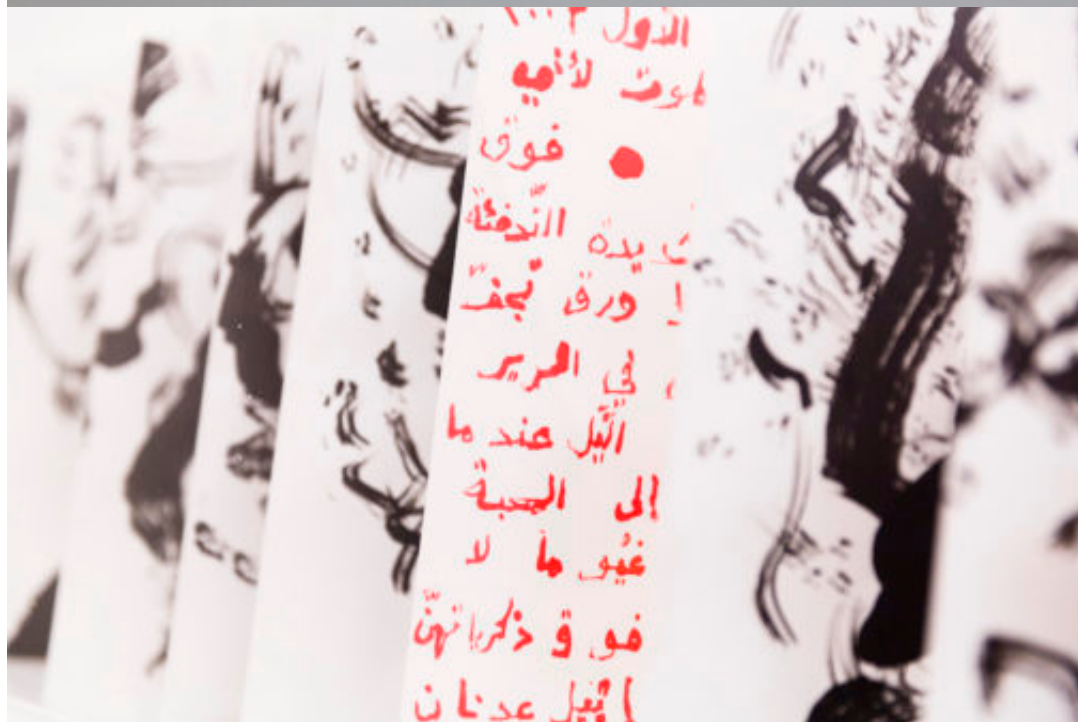 الأول ٢٠٠٣
لأنّي
فوق
التّدفئة
ورق تجفّ
في الحرير
اللّيل عند ما
إلى المحبة
غيو ما لا
فو ق ذكرياتهنّ
إيتيل عدنان